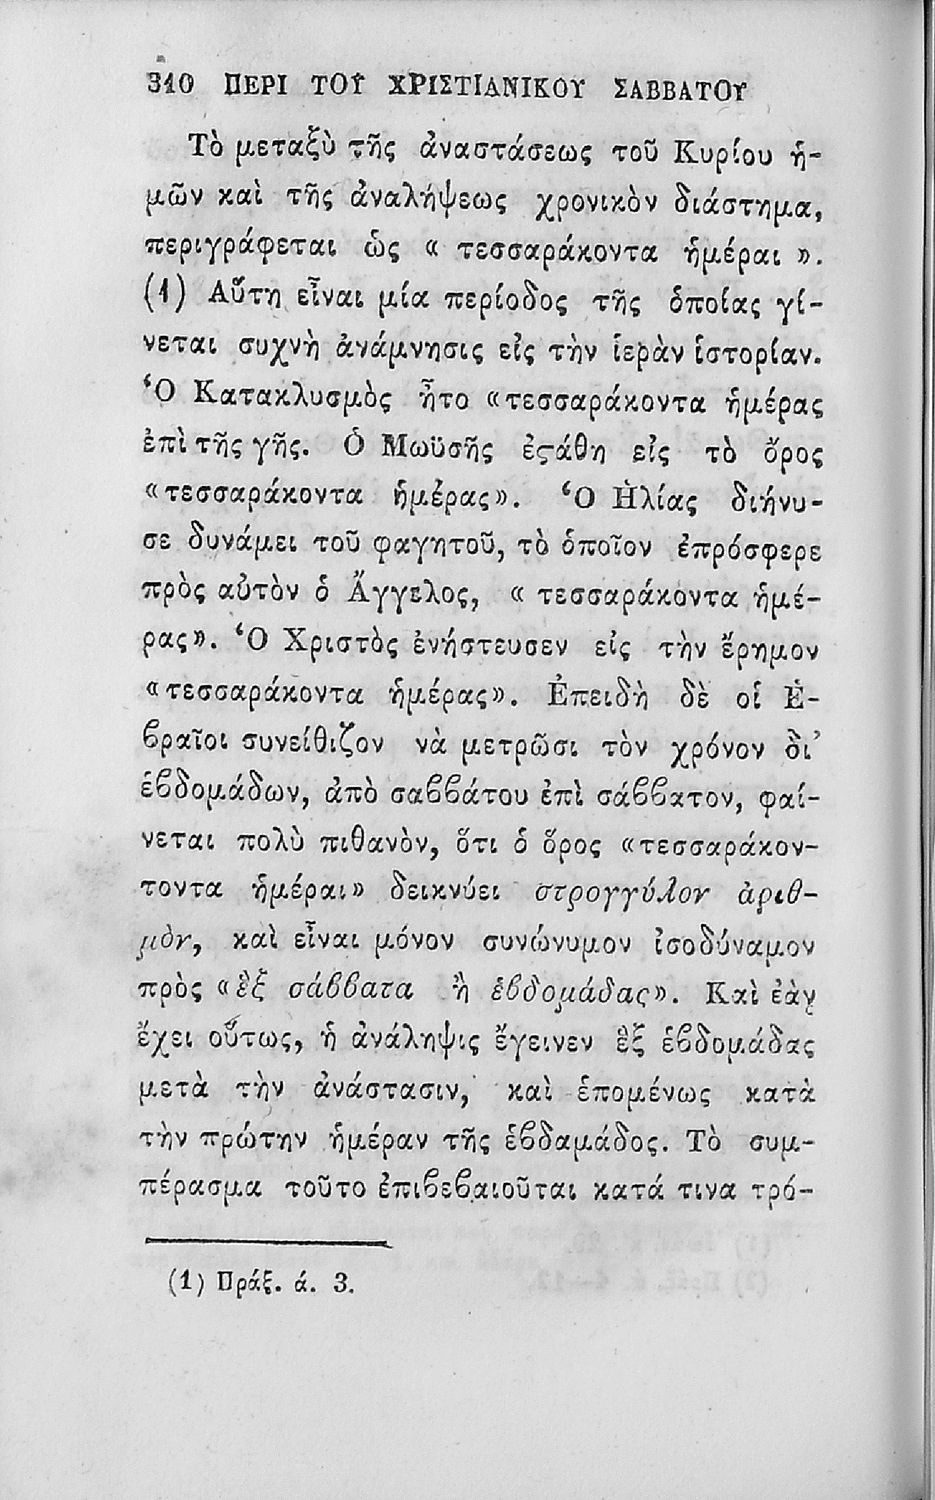 310 ΠΕΡΙ ΤΟΥ ΧΡΙΣΤΙΑΝΙΚΟΥ ΣΑΒΒΑΤΟΥ
Τὸ μεταξὺ τῆς ἀναστάσεως τοῦ Κυρίου ἡ-
μῶν καὶ τῆς ἀναλήψεως χρονικὸν διάστημα,
περιγράφεται ὡς « τεσσαράκοντα ἡμέραι ».
(1) Αὕτη εἶναι μία περίοδος τῆς ὁποίας γί-
νεται συχνὴ ἀνάμνησις εἰς τὴν ἱερὰν ἱστορίαν.
Ὁ Κατακλυσμὸς ἦτο «τεσσαράκοντα ἡμέρας
ἐπὶ τῆς γῆς. Ὁ Μωϋσῆς ἐϛάθη εἰς τὸ ὄρος
«τεσσαράκοντα ἡμέρας». Ὁ Ἠλίας διήνυ-
σε δυνάμει τοῦ φαγητοῦ, τὸ ὁποῖον ἐπρόσφερε
πρὸς αὐτὸν ὁ Ἄγγελος, « τεσσαράκοντα ἡμέ-
ρας». Ὁ Χριστὸς ἐνήστευσεν εἰς τὴν ἔρημον
«τεσσαράκοντα ἡμέρας». Ἐπειδὴ δὲ οἱ Ἑ-
ϐραῖοι συνείθιζον νὰ μετρῶσι τὸν χρόνον δι’
ἑϐδομάδων, ἀπὸ σαϐϐάτου ἐπὶ σάϐϐατον, φαί-
νεται πολὺ πιθανὸν, ὅτι ὁ ὅρος «τεσσαράκον-
τοντα ἡμέραι» δεικνύει στρογγύλον ἀριθ-
μὸν, καὶ εἶναι μόνον συνώνυμον ἰσοδύναμον
πρὸς «ἓξ σάϐϐατα ἢ ἑϐδομάδας». Καὶ ἐὰν
ἔχει οὕτως, ἡ ἀνάληψις ἔγεινεν ἓξ ἑϐδομάδας
μετὰ τὴν ἀνάστασιν, καὶ ἑπομένως κατὰ
τὴν πρώτην ἡμέραν τῆς ἑϐδαμάδος. Τὸ συμ-
πέρασμα τοῦτο ἐπιϐεϐαιοῦται κατά τινα τρό-
(1) Πράξ. ά. 3.